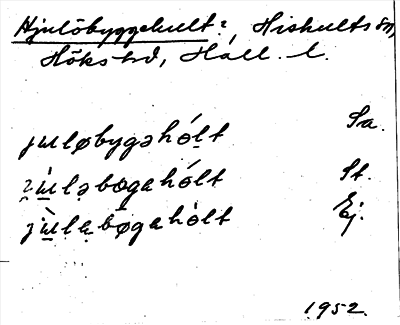 Hjulöbyggekult?, Hiskults sn,
Höks hd, Hall. l.
juløbygəhólt Sa.
ju̱ləbøgahólt St.
jùləbøgahòlt Ej.
1952.